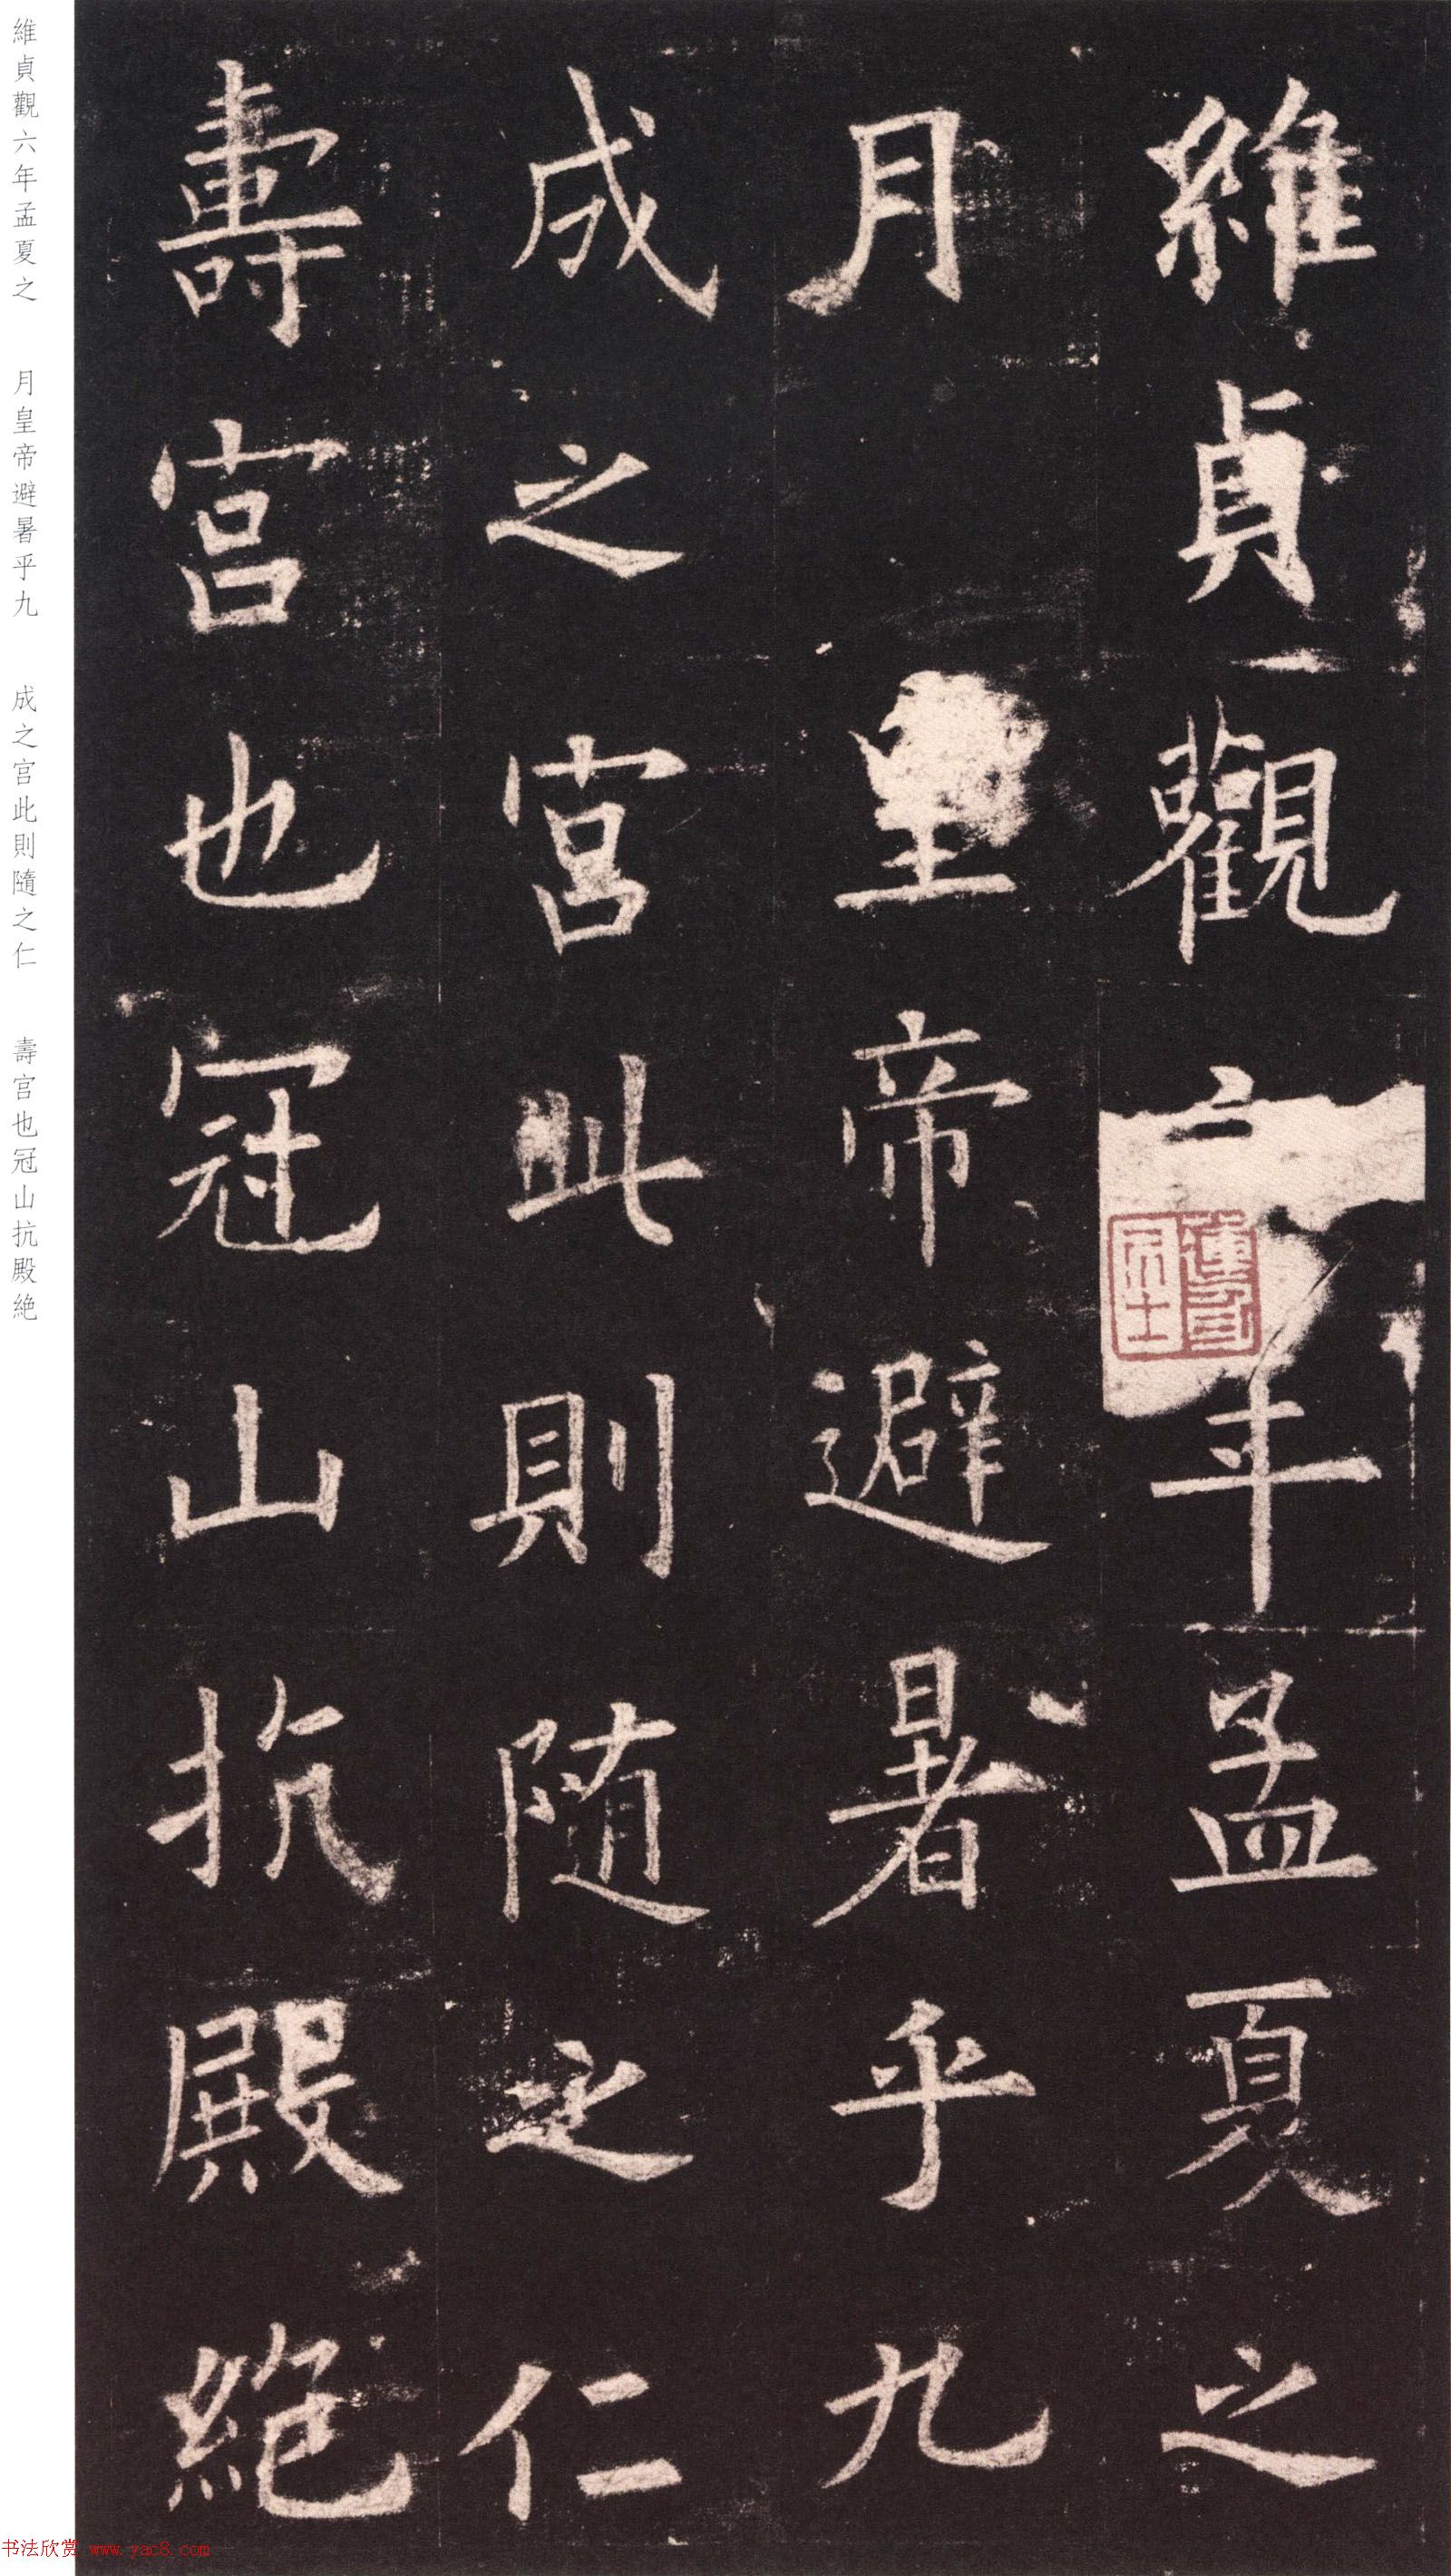 維貞觀六年孟夏之
月皇帝避暑乎九
成之宫此則随之仁
壽宫也冠山抗殿絶
維貞觀六年孟夏之 月皇帝避暑乎九 成之宫此則隨之仁 壽宫也冠山抗殿絶
书法欣赏 www.yac8.com